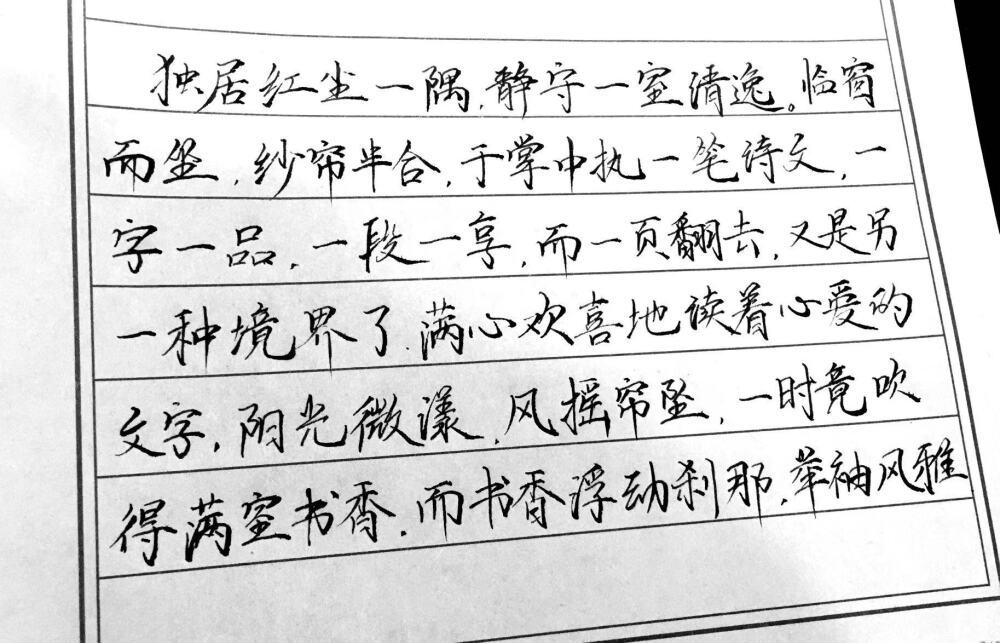 独居红尘一隅,静守一室清逸。临窗
而坐,纱帘半合,于掌中执一笔诗文,一
字一品,一段一享,而一页翻去,又是另
一种境界了.满心欢喜地读着心爱的
文字,阳光微漾,风摇帘坠,一时竟吹
得满室书香.而书香浮动刹那,举袖风雅